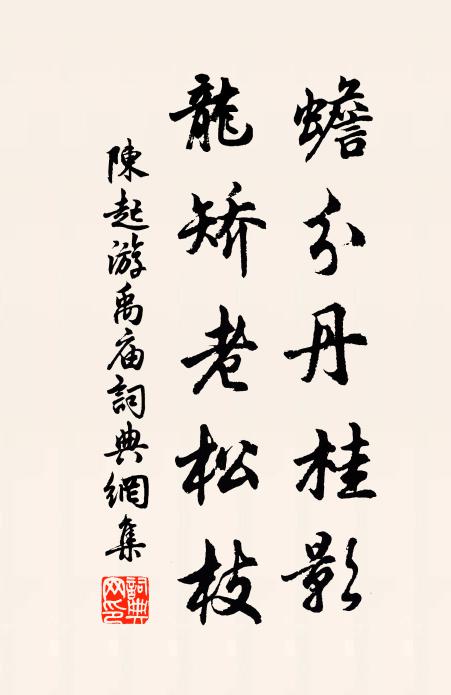 蟾分丹桂影
龍矯老松枝
陳起游禹庙詞典網集
詞典网印